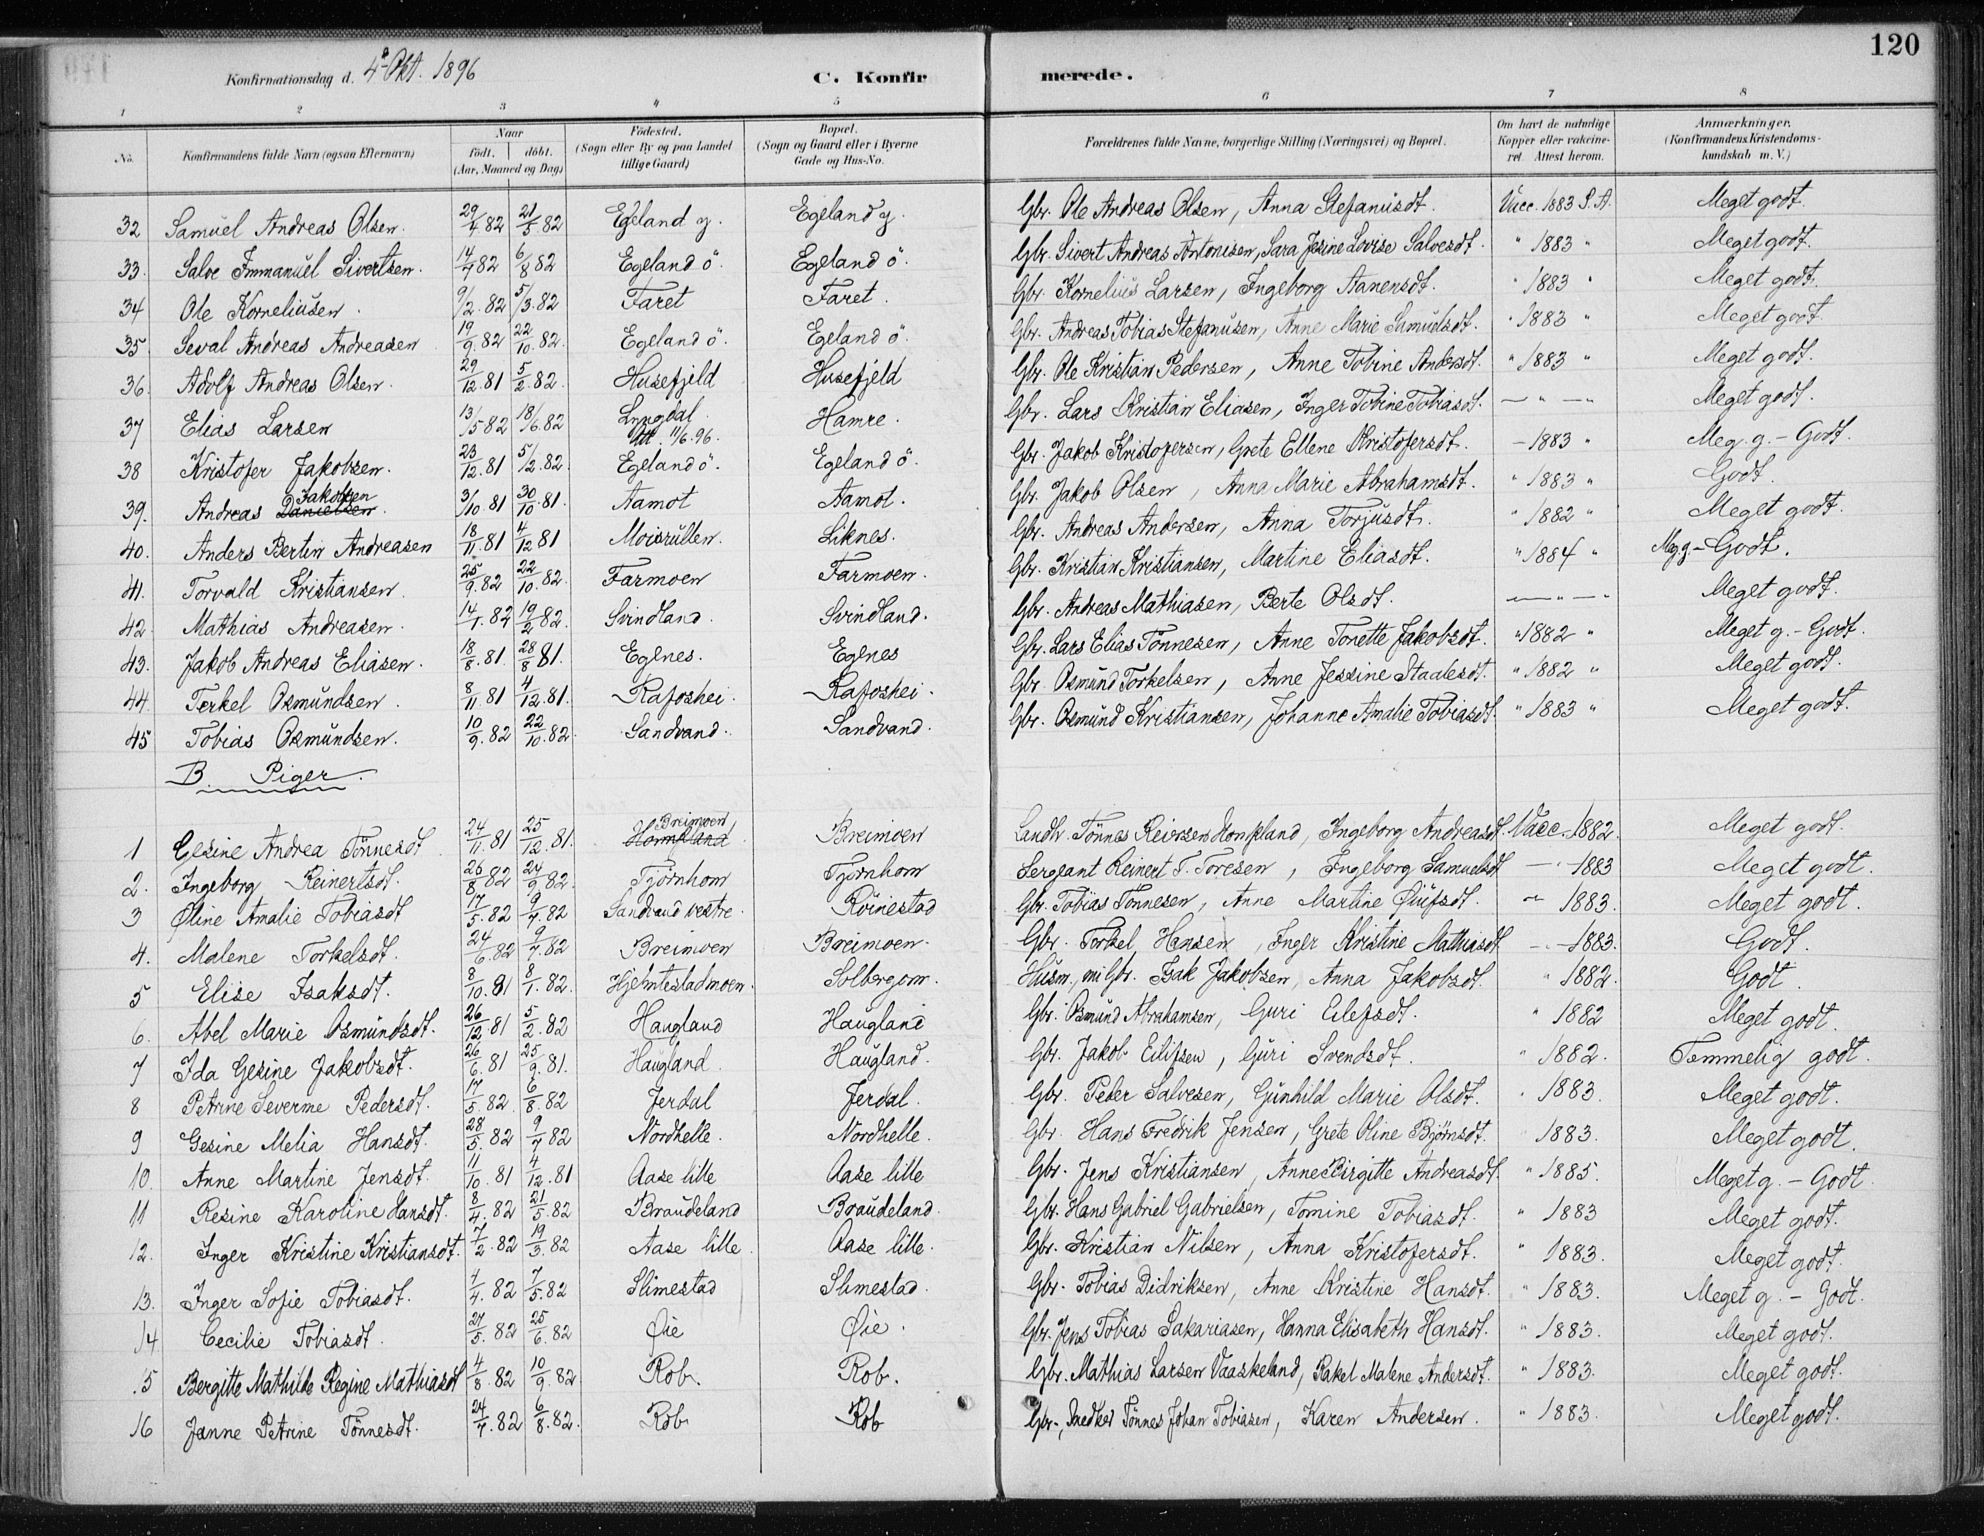 120
Konfirmationsdag d. 4de Okt. 1896 C. Konfirmerede.
1 2 3 4 5 6 7 8
No. Konfirmandens fulde Navn (ogsaa Efternavn) Naar født, døbt. (Aar, Maaned og Dag) Fødested. (Sogn eller By og paa Landet tillige Gaard) Bopæl. (Sogn og Gaard eller i Byerne Gade og Hus-No. Forældrenes fulde Navne, borgerlige Stilling (Næringsvei) og Bopæl. Om havt de naturlige Kopper eller vakcineret. Attest herom. Anmærkninger. (Konfirmandens Kristendomskundskab m. V.)
32 Samuel Andreas Olsen. 29/4 82 21/5 82 Egeland y. Egeland y. Gbr. Ole Andreas Olsen, Anna Stefanusdt. Vacc. 1883 S.A. Meget godt.
33. Salve Immanuel Sivertsen. 14/7 82 6/8 82 Egeland ö. Egeland ö. Gbr. Sivert Andreas Antonisen, Sara Jesine Lovise Salvesdt. " 1883 " Meget godt.
34 Ole Korneliusen. 9/2. 82 5/3. 82 Faret Faret. Gbr. Kornelius Larsen, Ingeborg Aanensdt. " 1883 " Meget godt.
35. Seval Andreas Andreasen 19/9. 82 22/10. 82. Egeland ö. Egeland ö. Gbr. Andreas Tobias Stefanusen, Anne Marie Samuelsdt. " 1883 " Meget godt
36. Adolf Andreas Olsen. 29/12. 81 5/2. 82. Husefjeld Husefjeld Gbr. Ole Kristian Pedersen, Anne Tobine Andersdt. " 1883 " Meget godt.
37 Elias Larsen 13/5 82 18/6. 82 Lyngdal Att. 11/6. 96. Hamre. Gbr. Lars Kristian Eliasen, Inger Tobine Tobiasdt. — " — Meget godt.
38 Kristofer Jakobsen. 23/12. 81 5/2. 82. Egeland ö. Egeland ö. Gbr. Jakob Kristofersen, Grete Ellene Kristofersdt. — 1883 " Meg. g. – Godt.
39. Andreas Danielsen Jakobsen. 3/10 81 30/10 81. Aamot Aamot. Gbr. Jakob Olsen, Anna Marie Abrahamsdt. " 1883 " Godt.
40. Anders Bertin Andreasen 18/11. 81 4/12 81 Moisrullen. Liknes. Gbr. Andreas Andersen, Anna Torjusdt. " 1882 " Meget godt.
41. Torvald Kristiansen. 25/9. 82 22/10. 82. Farmoen Farmoen. Gbr. Kristian Kristiansen, Martine Eliasdt. " 1884 " Meg g – Godt.
42. Mathias Andreasen. 14/1. 82 19/2 82. Svindland. Svindland. Gbr. Andreas Mathiasen, Berte Olsdt. — " — Meget godt.
43. Jakob Andreas Eliasen. 18/8. 81. 28/8 81. Egenes. Egenes Gbr. Lars Elias Tönnesen, Anne Tonette Jakobsdt. " 1882 " Meget g. – Godt.
44. Terkel Osmundsen. 8/11. 81 4/12. 81. Rafoshei. Rafoshei. Gbr. Osmund Torkelsen, Anne Jessine Staalesdt. " 1882 " Meget godt.
45 Tobias Osmundsen. 10/9. 82 22/10. 82. Sandvand. Sandvand. Gbr. Osmund Kristiansen, Johanne Amalie Tobiasdt. " 1883 " Meget godt.
B Piger.
1 Gesine Andrea Tönnesdt 24/11. 81 25/12. 81. Hompland Breimoen, Breimoen Landh. Tönnes Reiersen Hompland, Ingeborg Andreasdt. Vacc. 1882. Meget godt.
2. Ingeborg Reinertsdt. 26/8 82 24/9. 82. Tjörnhom Tjörnhom Sergeant Reinert T. Toresen, Ingeborg Samuelsdt — " — 1883 Meget godt.
3 Øline Amalie Tobiasdt 17/5. 82 9/7. 82 Sandvand vestre. Röinestad Gbr. Tobias Tönnesen, Anne Martine Olufsdt. — 1883. Meget godt.
4. Malene Torkelsdt. 24/6. 82 9/7. 82 Breimoen Breimoen. Gbr. Torkel Hansen, Inger Kristine Mathiasdt — " — 1883. Godt.
5 Elise Isaksdt. 8/10. 81 8/1. 82. Hjelmtestadmoen. Solbergom. Husm., nu Gbr. Isak Jakobsen, Anna Jakobsdt. " 1882. Godt
6. Abel Marie Osmundsdt. 26/12. 81 5/2. 82 Haugland Haugland Gbr. Osmund Abrahamsen, Guri Eilefsdt. " 1882 Meget godt.
7 Ida Gesine Jakobsdt. 26/6. 81 25/9. 81. Haugland. Haugland. Gbr. Jakob Eilifsen, Guri Svendsdt. " 1882. Temmelig godt.
8 Petrine Severine Pedersdt. 17/5. 82. 6/8. 82 Jerdal Jerdal. Gbr. Peder Salvesen, Gunhild Marie Olsdt. " 1883. Meget godt.
9 Gesine Melia Hansdt. 28/5. 82 9/7 82 Nordhelle. Nordhelle. Gbr. Hans Fredrik Jensen, Grete Oline Björnsdt. 1883. Meget godt.
10. Anne Martine Jensdt. 11/10. 81 4/12. 81 Aase lille Aase lille Gbr. Jens Kristiansen, Anne Birgitte Andreasdt. " 1885. Meget g. – Godt
11 Resine Karoline Hansdt. 8/4. 82 21/5. 82 Braudeland Braudeland. Gbr. Hans Gabriel Gabrielsen, Tomine Tobiasdt. " 1883 Meget godt.
12. Inger Kristine Kristiansdt. 7/2. 82 19/3. 82 Aase lille. Aase lille. Gbr. Kristian Nilsen, Anna Kristofersdt. " 1883. Meget godt.
13. Inger Sofie Tobiasdt. 7/4. 82 7/5. 82 Slimestad Slimestad. Gbr. Tobias Didriksen, Anne Kristine Hansdt. " 1883. Meget g. – Godt.
14 Cecilie Tobiasdt. 27/5. 82 25/6. 82 Øie Øie. Gbr. Jens Tobias Sakariasen, Hanna Elisabeth Hansdt. " 1883. Meget godt.
15 Bergitte Mathilde Regine Mathiasdt 4/8. 82 10/9. 82 Rob. Rob. Gbr. Mathias Larsen Vaaskeland, Rakel Malene Andersdt. " 1883. Meget godt.
16 Janne Petrine Tönnesdt. 24/7. 82 6/8. 82. Rob Rob Gbr., Snedker Tönnes Johan Tobiasen, Karen Andersen. " 1883. Meget godt.